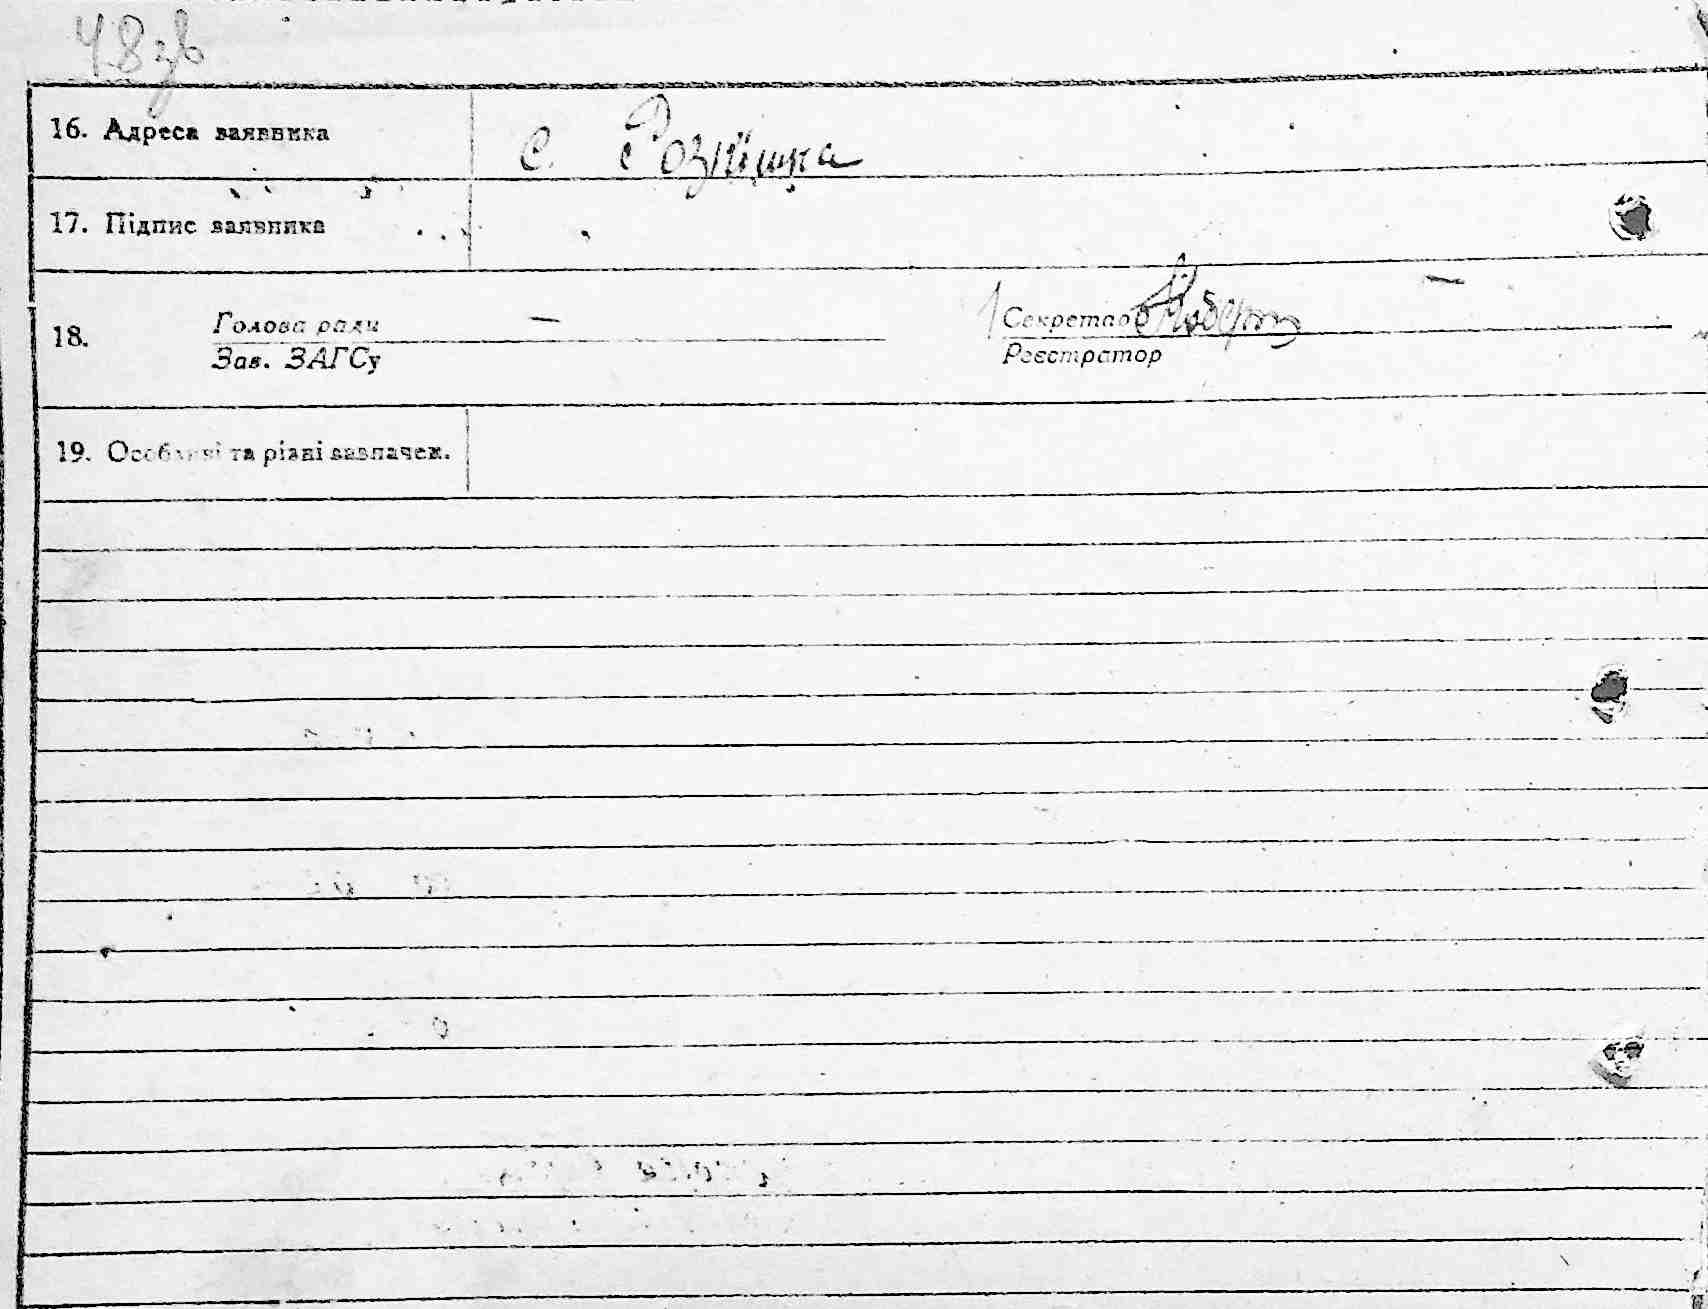 48зв
16. Адреса заявника
с. Розпішка
17. Підпис заявника
18.
Голова ради —
Зав. ЗАГСу
Секретар
Реєстратор
—
19. Особливі та різні зазначен.